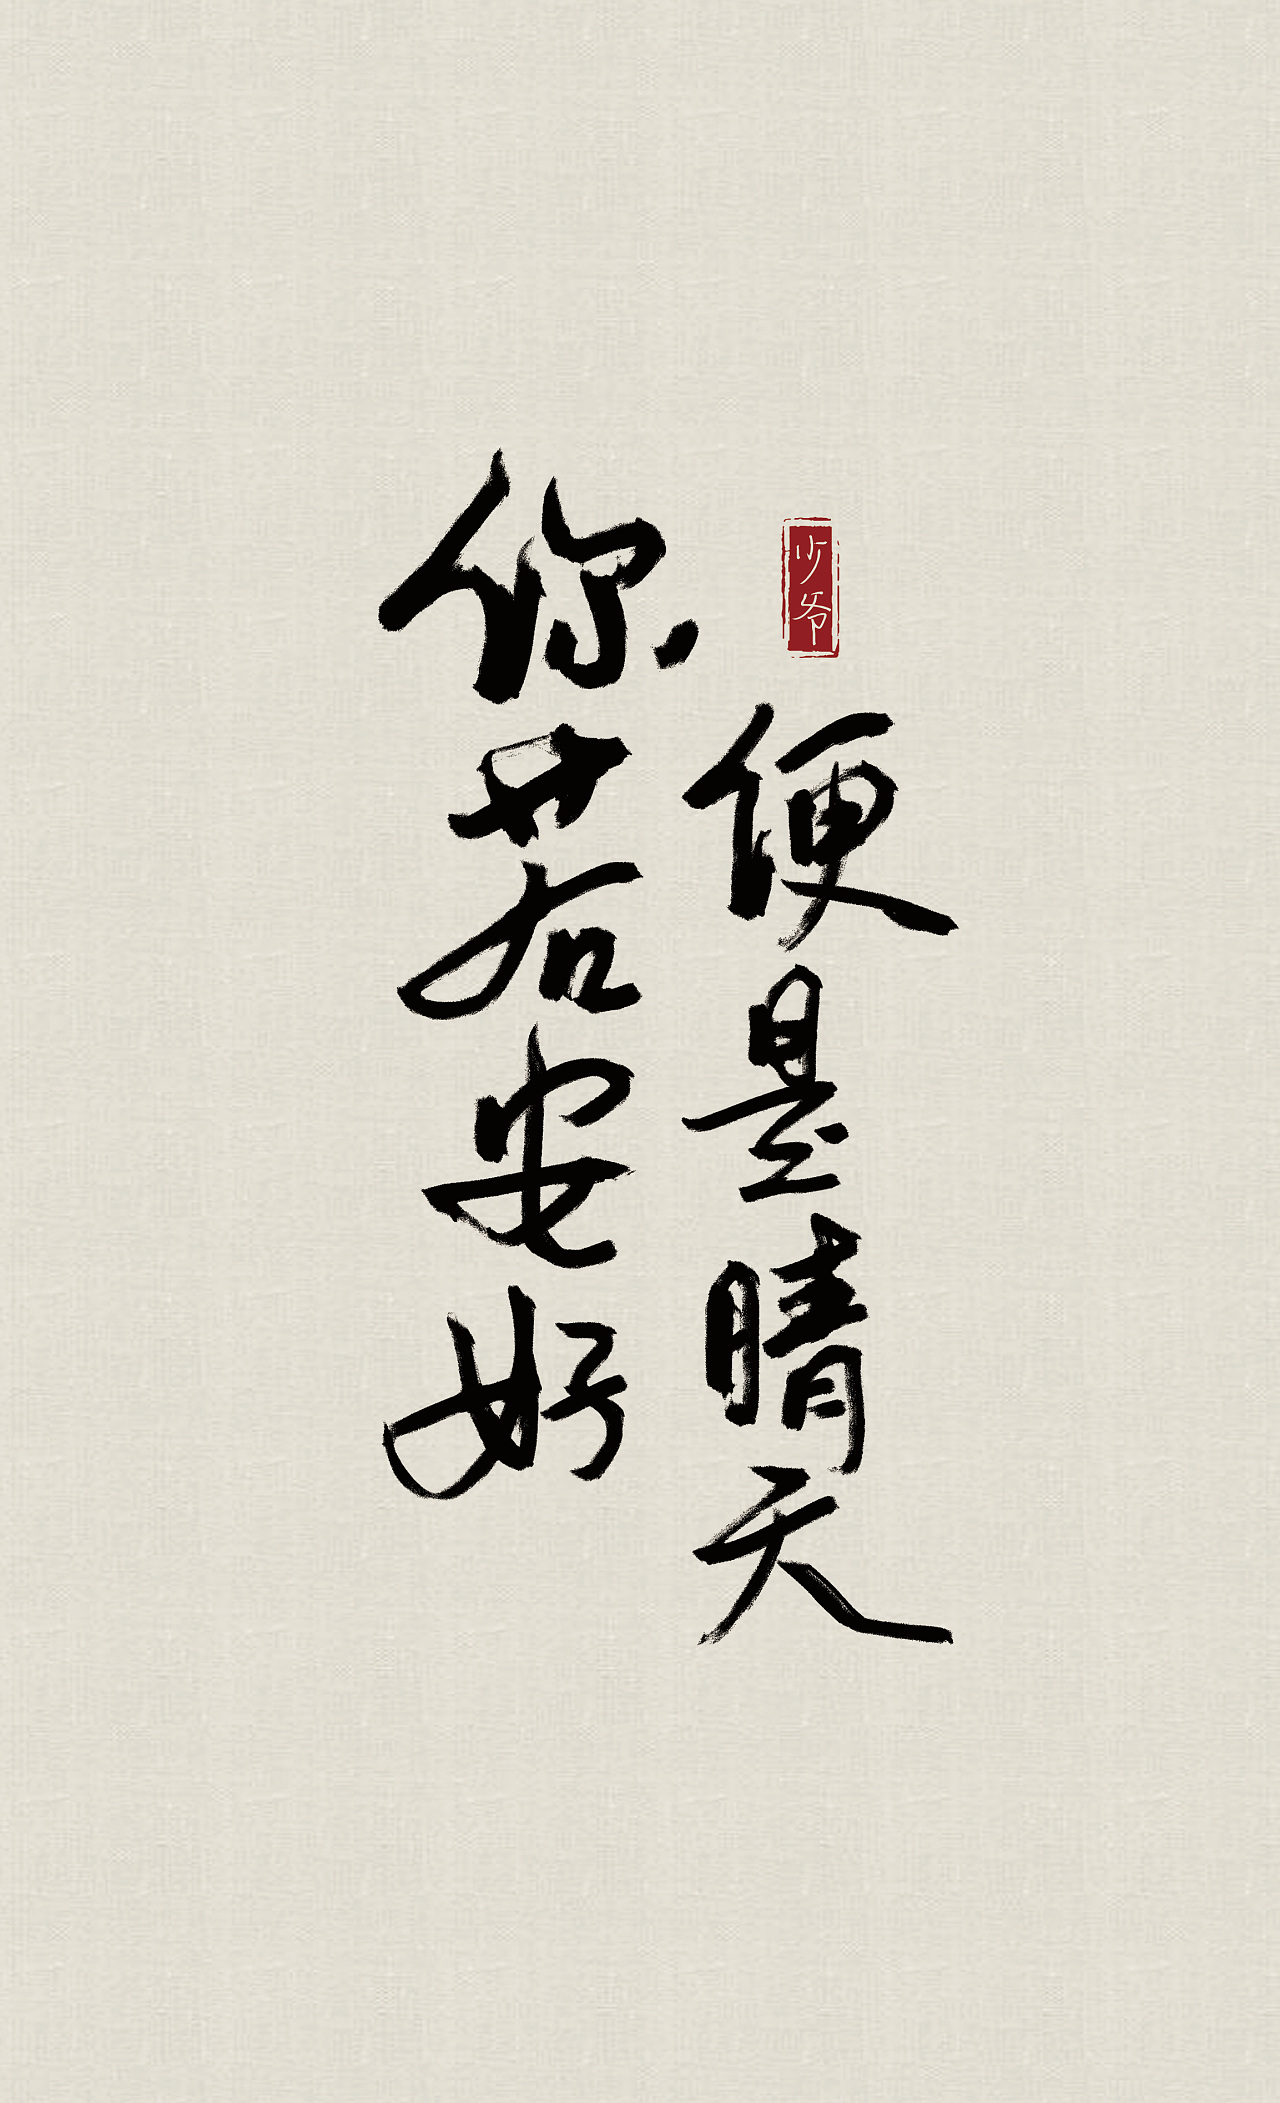 你若安好
便是晴天
少爷